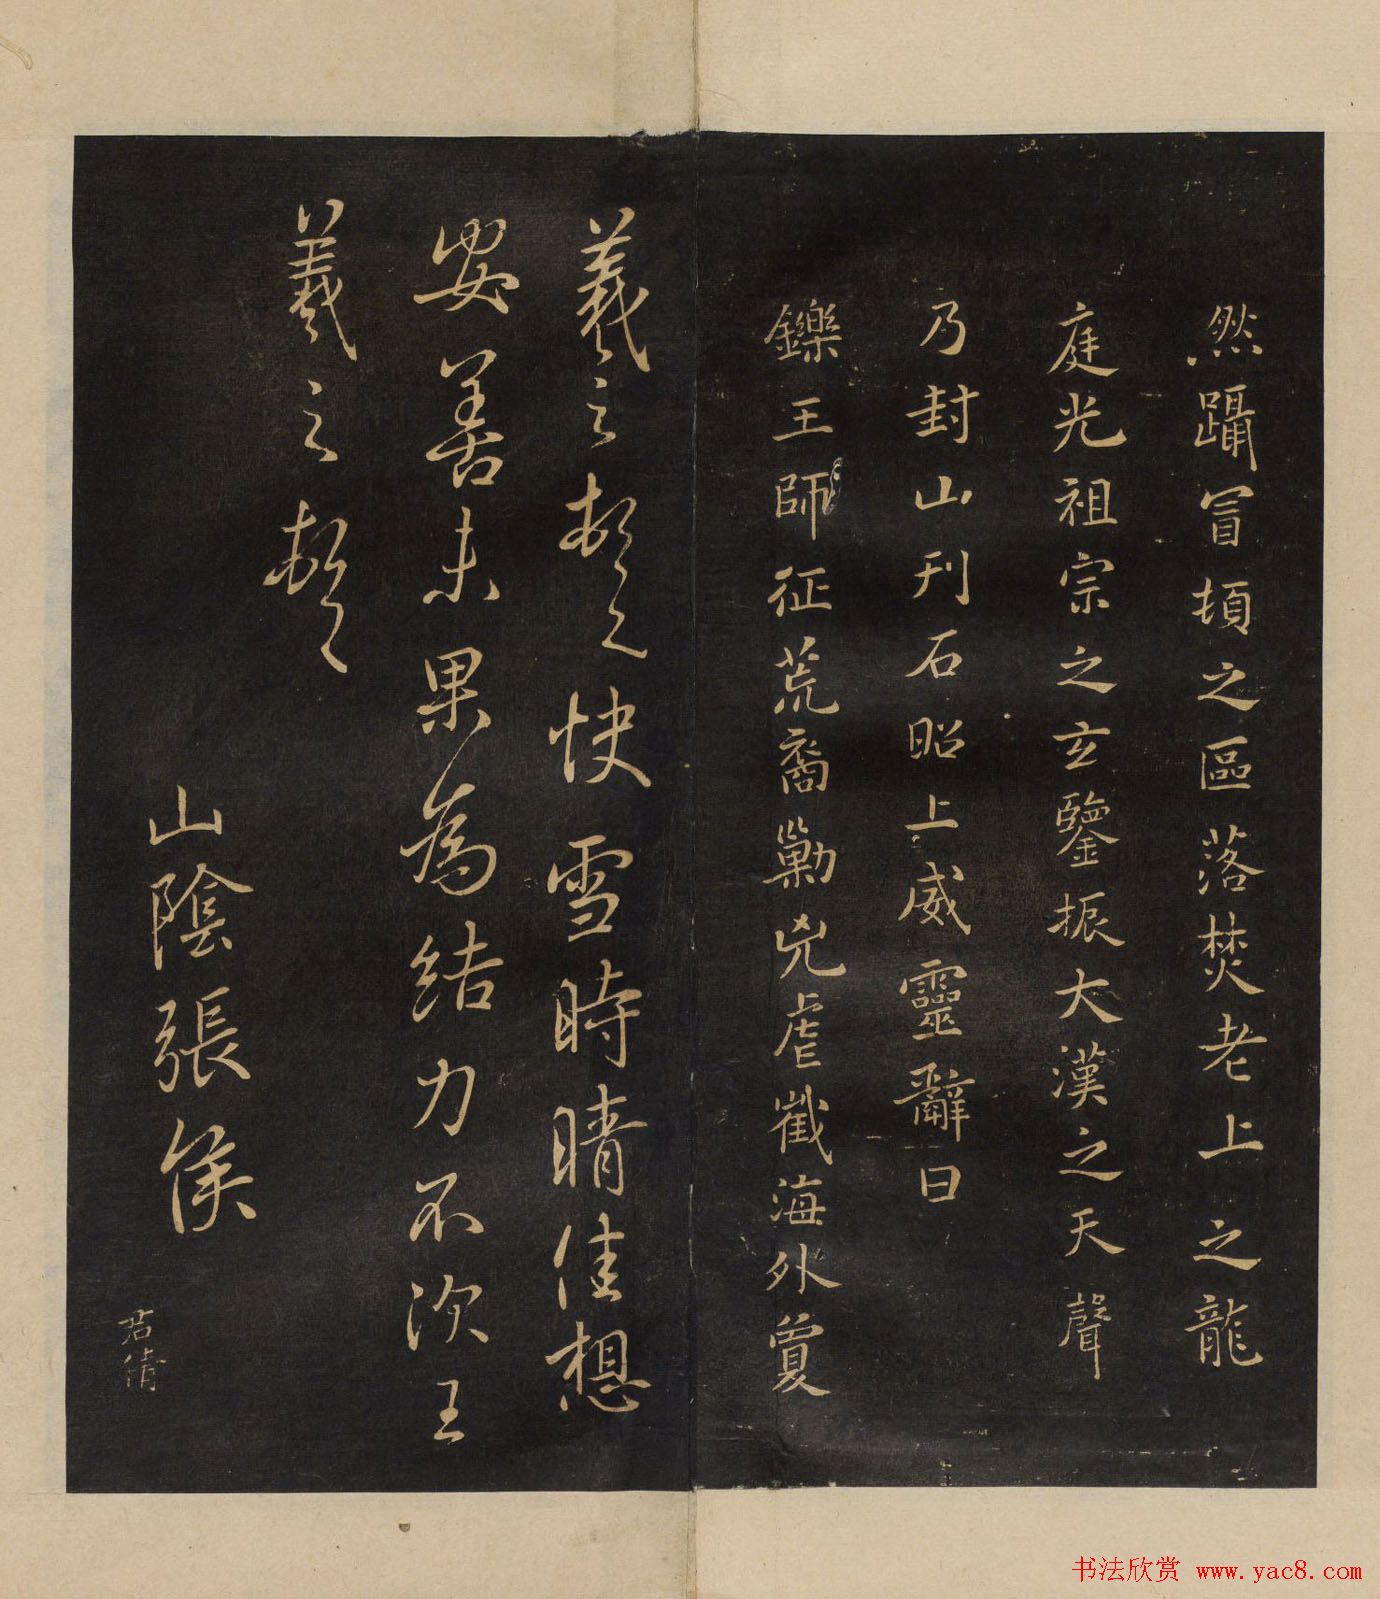 然躡冒頓之區落焚老上之龍
庭光祖宗之玄鑒振大漢之天聲
乃封山刊石昭上威靈辭曰
鑠王師征荒裔勦兇虐截海外敻
羲之頓首快雪時晴佳想
安善未果為結力不次王
羲之頓首
山陰張侯
君倩
书法欣赏 www.yac8.com